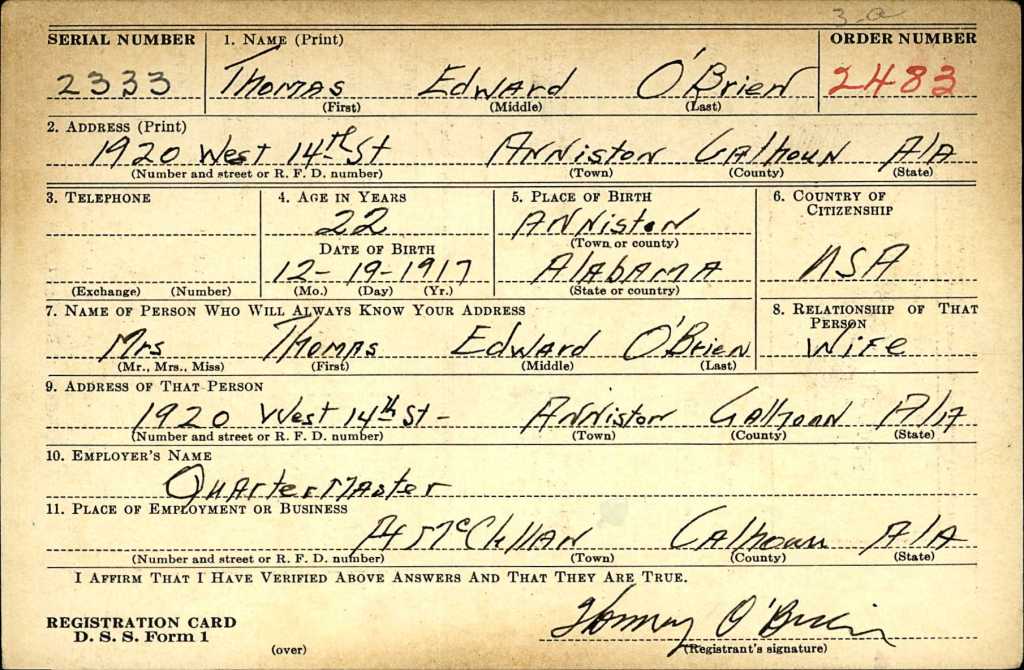 3-a
SERIAL NUMBER 1. NAME (Print) ORDER NUMBER
2333 Thomas Edward O'Brien 2483
(First) (Middle) (Last)
2. ADDRESS (Print)
1920 West 14th St Anniston Calhoun Ala
(Number and street or R. F. D. number) (Town) (County) (State)
3. TELEPHONE 4. AGE IN YEARS 5. PLACE OF BIRTH 6. COUNTRY OF CITIZENSHIP
22 Anniston
(Town or county)
DATE OF BIRTH
12-19-1917 Alabama USA
(Exchange) (Number) (Mo.) (Day) (Yr.) (State or country)
7. NAME OF PERSON WHO WILL ALWAYS KNOW YOUR ADDRESS 8. RELATIONSHIP OF THAT PERSON
Mrs Thomas Edward O'Brien Wife
(Mr., Mrs., Miss) (First) (Middle) (Last)
9. ADDRESS OF THAT PERSON
1920 West 14th St- Anniston Calhoun Ala
(Number and street or R. F. D. number) (Town) (County) (State)
10. EMPLOYER'S NAME
Quartermaster
11. PLACE OF EMPLOYMENT OR BUSINESS
Ft McClellan Calhoun Ala
(Number and street or R. F. D. number) (Town) (County) (State)
I AFFIRM THAT I HAVE VERIFIED ABOVE ANSWERS AND THAT THEY ARE TRUE.
REGISTRATION CARD
D. S. S. Form 1
O'Brien
(over) (Registrant's signature)